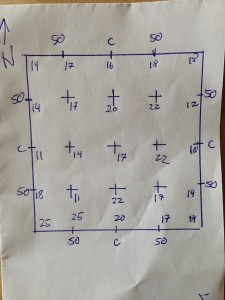 N
50 C 50
14 17 16 18
50 50
14 17 20 22 12
C C
11 14 17 22
50 50
18 11 22 17 14
25 25 20 17 14
50 C 50